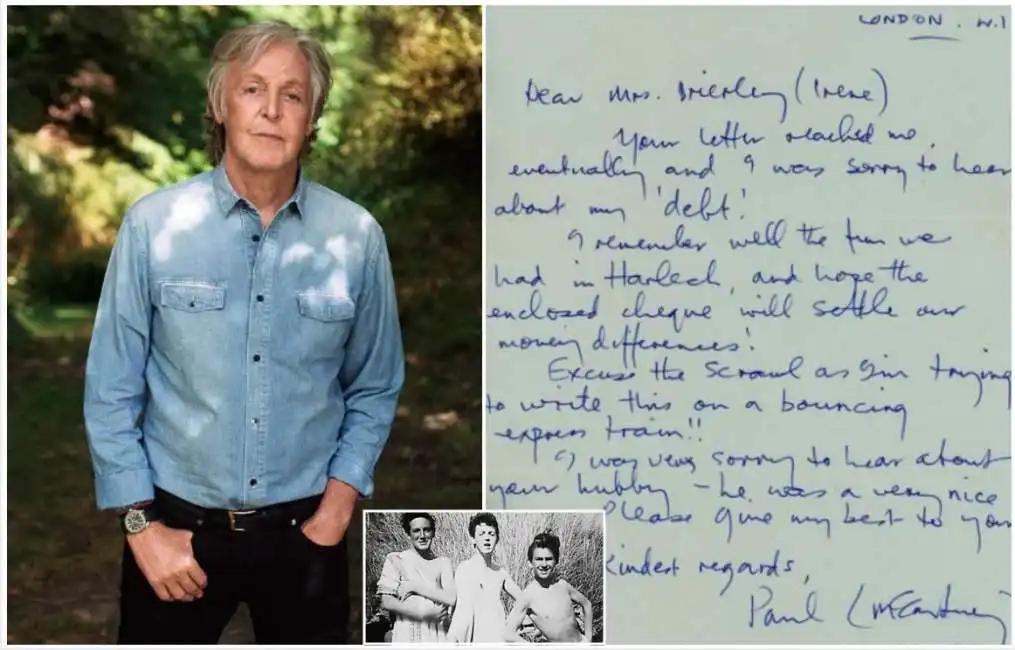 LONDON. W.1
Dear Mrs. Brierley (Irene)
Your letter reached me,
eventually, and I was sorry to hear
about my 'debt'!
I remember well the fun we
had in Harlech, and hope the
enclosed cheque will settle our
money differences!
Excuse the scrawl as I'm trying
to write this on a bouncing
express train!!
I was very sorry to hear about
your hubby - he was a very nice
Please give my best to your
kindest regards,
Paul (McCartney)